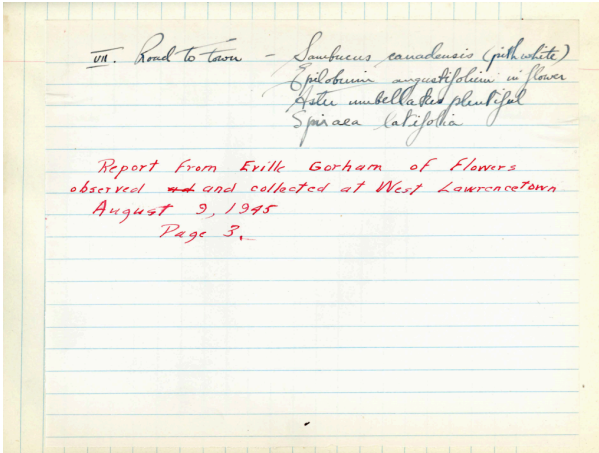 VII. Road to Town - Sambucus canadensis (pith white)
Epilobium angustifolium in flower
Aster umbellatus plentiful
Spiraea latifolia
Report From Erille Gorham of Flowers
observed and and collected at West Lawrencetown
August 9, 1945
Page 3.